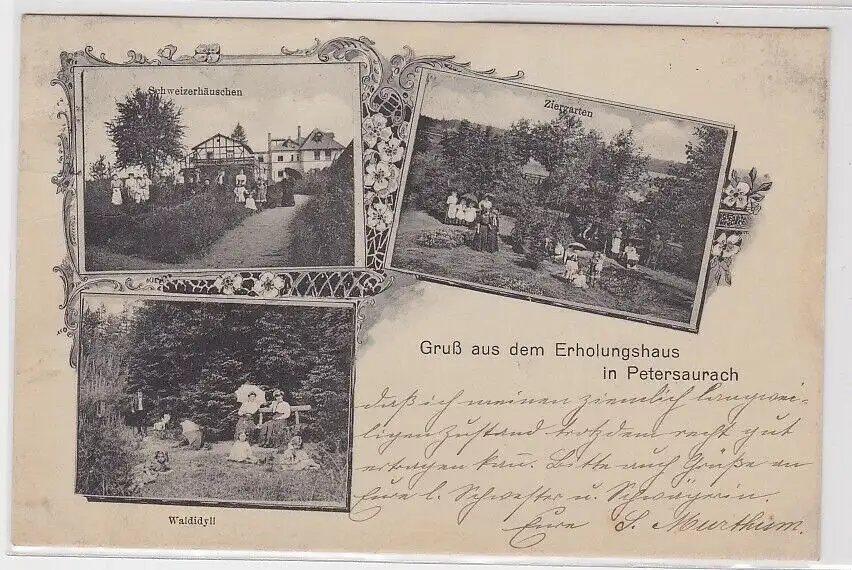 Schweizerhäuschen
Ziergarten
Waldidyll
Gruß aus dem Erholungshaus
in Petersaurach
daß ich meinen ziemlich langwei-
ligen Zustand trotzdem recht gut
ertragen kann. Bitte auch Grüße an
Eure l. Schwester u. Schwägerin.
Eure S.